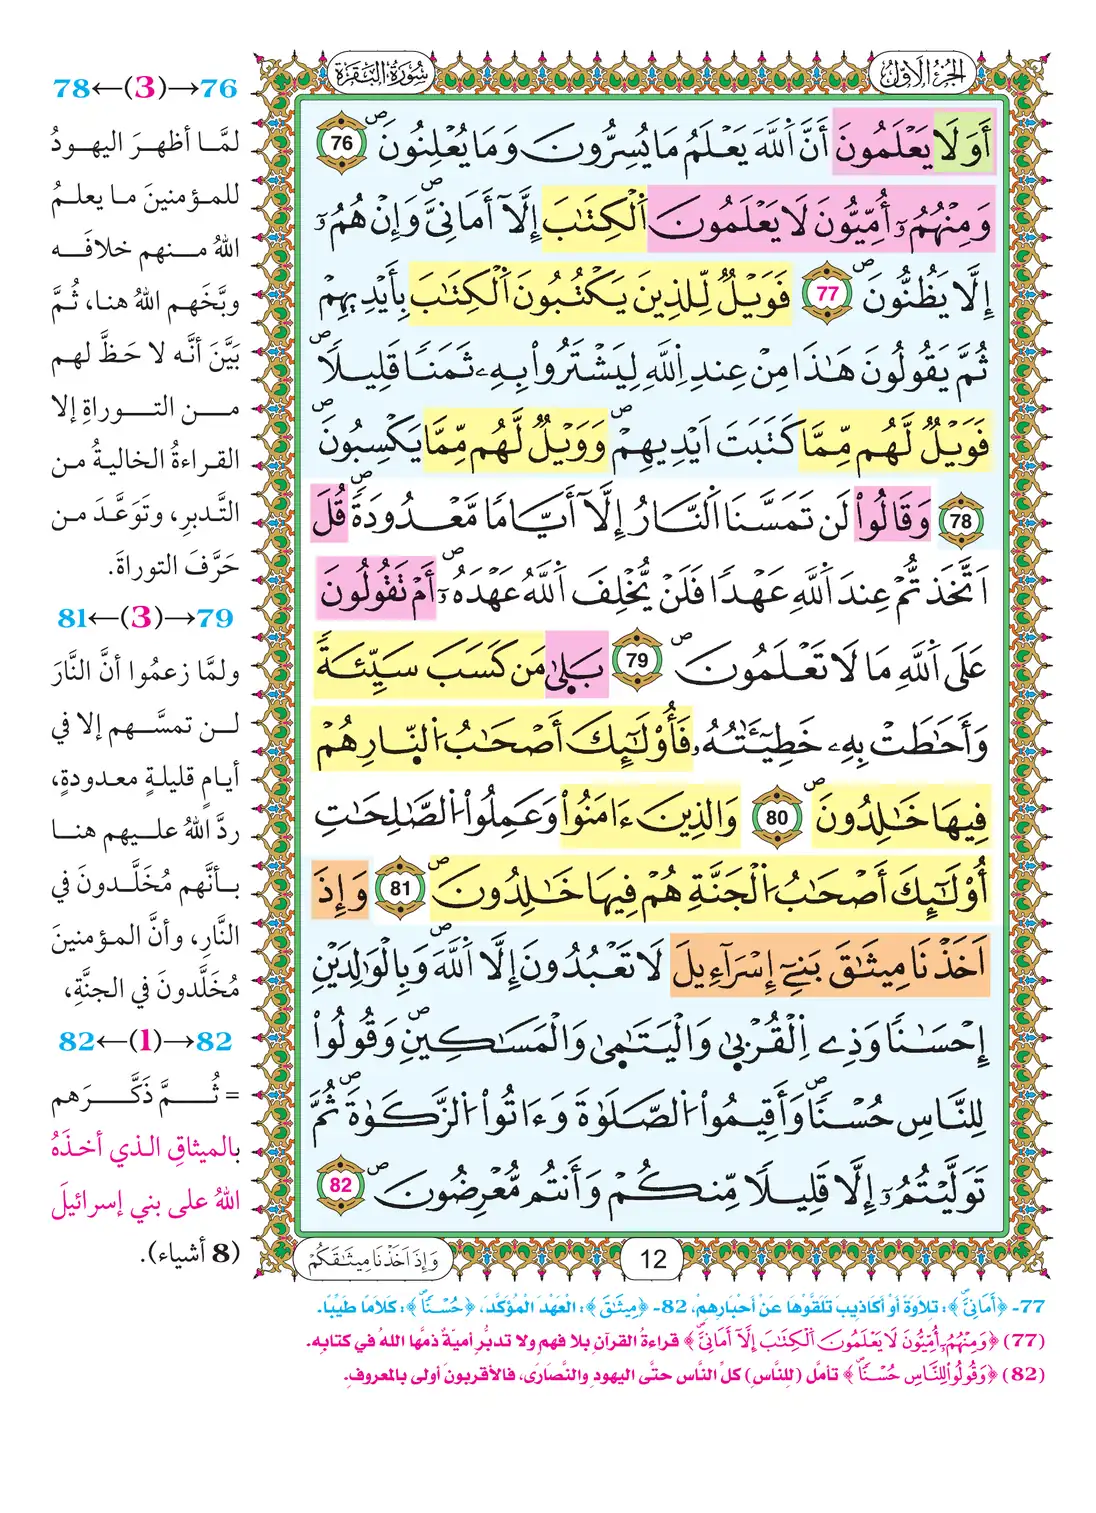 الجزء الأول
سورة البقرة
أَوَلَا يَعْلَمُونَ أَنَّ اَ۬للَّهَ يَعْلَمُ مَا يُسِرُّونَ وَمَا يُعْلِنُونَۖ 76
وَمِنْهُمُۥٓ أُمِّيُّونَ لَا يَعْلَمُونَ اَ۬لْكِتَٰبَ إِلَّآ أَمَانِيَّۖ وَإِنْ هُمُۥٓ
إِلَّا يَظُنُّونَۖ 77 فَوَيْلٞ لِّلذِينَ يَكْتُبُونَ اَ۬لْكِتَٰبَ بِأَيْدِيهِمْ
ثُمَّ يَقُولُونَ هَٰذَا مِنْ عِندِ اِ۬للَّهِ لِيَشْتَرُواْ بِهِۦ ثَمَنٗا قَلِيلٗاۖ
فَوَيْلٞ لَّهُم مِّمَّا كَتَبَتَ اَيْدِيهِمْۖ وَوَيْلٞ لَّهُم مِّمَّا يَكْسِبُونَۖ
78 وَقَالُواْ لَن تَمَسَّنَا اَ۬لنَّارُ إِلَّآ أَيَّامٗا مَّعْدُودَةٗۖ قُلَ
اَتَّخَذتُّمْ عِندَ اَ۬للَّهِ عَهْدٗا فَلَنْ يُّخْلِفَ اَ۬للَّهُ عَهْدَهُۥٓۖ أَمْ تَقُولُونَ
عَلَى اَ۬للَّهِ مَا لَا تَعْلَمُونَۖ 79 بَلَىٰ مَن كَسَبَ سَيِّئَةٗ
وَأَحَٰطَتْ بِهِۦ خَطِيٓـَٰٔتُهُۥ فَأُوْلَٰٓئِكَ أَصْحَٰبُ اُ۬لنّ۪ارِ هُمْ
فِيهَا خَٰلِدُونَۖ 80 وَالذِينَ ءَامَنُواْ وَعَمِلُواْ اُ۬لصَّٰلِحَٰتِ
أُوْلَٰٓئِكَ أَصْحَٰبُ اُ۬لْجَنَّةِ هُمْ فِيهَا خَٰلِدُونَۖ 81 وَإِذَ
اَخَذْنَا مِيثَٰقَ بَنِےٓ إِسْرَآءِيلَ لَا تَعْبُدُونَ إِلَّا اَ۬للَّهَۖ وَبِالْوَٰلِدَيْنِ
إِحْسَٰنٗا وَذِے اِ۬لْقُرْبَىٰ وَالْيَتَٰمَىٰ وَالْمَسَٰكِينِۖ وَقُولُواْ
لِلنَّاسِ حُسْنٗاۖ وَأَقِيمُواْ اُ۬لصَّلَوٰةَ وَءَاتُواْ اُ۬لزَّكَوٰةَۖ ثُمَّ
تَوَلَّيْتُمُۥٓ إِلَّا قَلِيلٗا مِّنكُمْ وَأَنتُم مُّعْرِضُونَۖ 82
وَإِذَ اَخَذْنَا مِيثَٰقَكُمْ
12
76→(3)←78
لمَّا أظهرَ اليهودُ
للمؤمنينَ ما يعلمُ
اللهُ منهم خلافَه
وبَّخَهم اللهُ هنا، ثُمَّ
بَيَّنَ أنَّه لا حَظَّ لهم
من التوراةِ إلا
القراءةُ الخاليةُ من
التَّدبرِ، وتَوَعَّدَ من
حَرَّفَ التوراةَ.
79→(3)←81
ولمَّا زعمُوا أنَّ النَّارَ
لن تمسَّهم إلا في
أيامٍ قليلةٍ معدودةٍ،
ردَّ اللهُ عليهم هنا
بأنَّهم مُخَلَّدونَ في
النَّارِ، وأنَّ المؤمنينَ
مُخَلَّدونَ في الجنَّةِ،
82→(1)←82
= ثُمَّ ذَكَّرَهم
بالميثاقِ الذي أخذَهُ
اللهُ على بني إسرائيلَ
(8 أشياء).
77- ﴿أَمَانِيَّۖ﴾: تِلَاوَةً أوْ أكَاذِيبَ تَلَقَّوْهَا عَنْ أحْبَارِهِمْ، 82- ﴿مِيثَٰقَ﴾: الْعَهْدَ الْمُؤَكَّدَ، ﴿حُسْنٗاۖ﴾: كَلَامًا طَيِّبًا.
(77) ﴿وَمِنْهُمُۥٓ أُمِّيُّونَ لَا يَعْلَمُونَ اَ۬لْكِتَٰبَ إِلَّآ أَمَانِيَّۖ﴾ قراءةُ القرآنِ بلا فهمٍ ولا تدبُّرٍ أميّةٌ ذمَّها اللهُ في كتابِه.
(82) ﴿وَقُولُواْ لِلنَّاسِ حُسْنٗاۖ﴾ تأمَّل (لِلنَّاسِ) كلِّ النَّاس حتَّى اليهودِ والنَّصارَى، فالأقربونَ أولى بالمعروفِ.